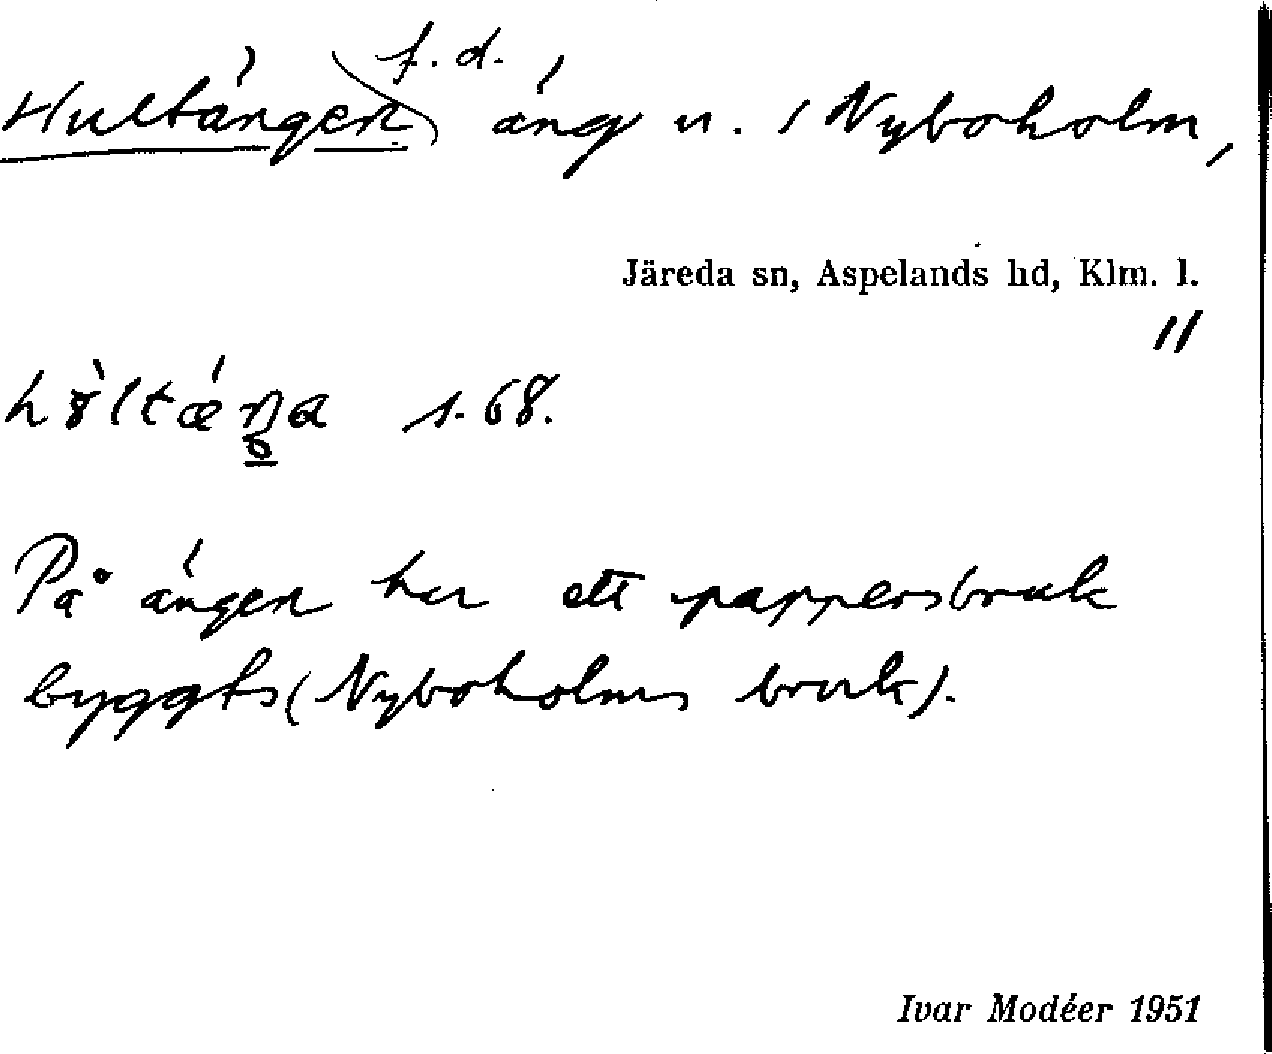 Hultängen, f.d. äng u. 1 Nyboholm,
Järeda sn, Aspelands hd, Klm. l.
11
s. 68.
På ängen har ett pappersbruk
byggts (Nyboholms bruk).
Ivar Modéer 1951